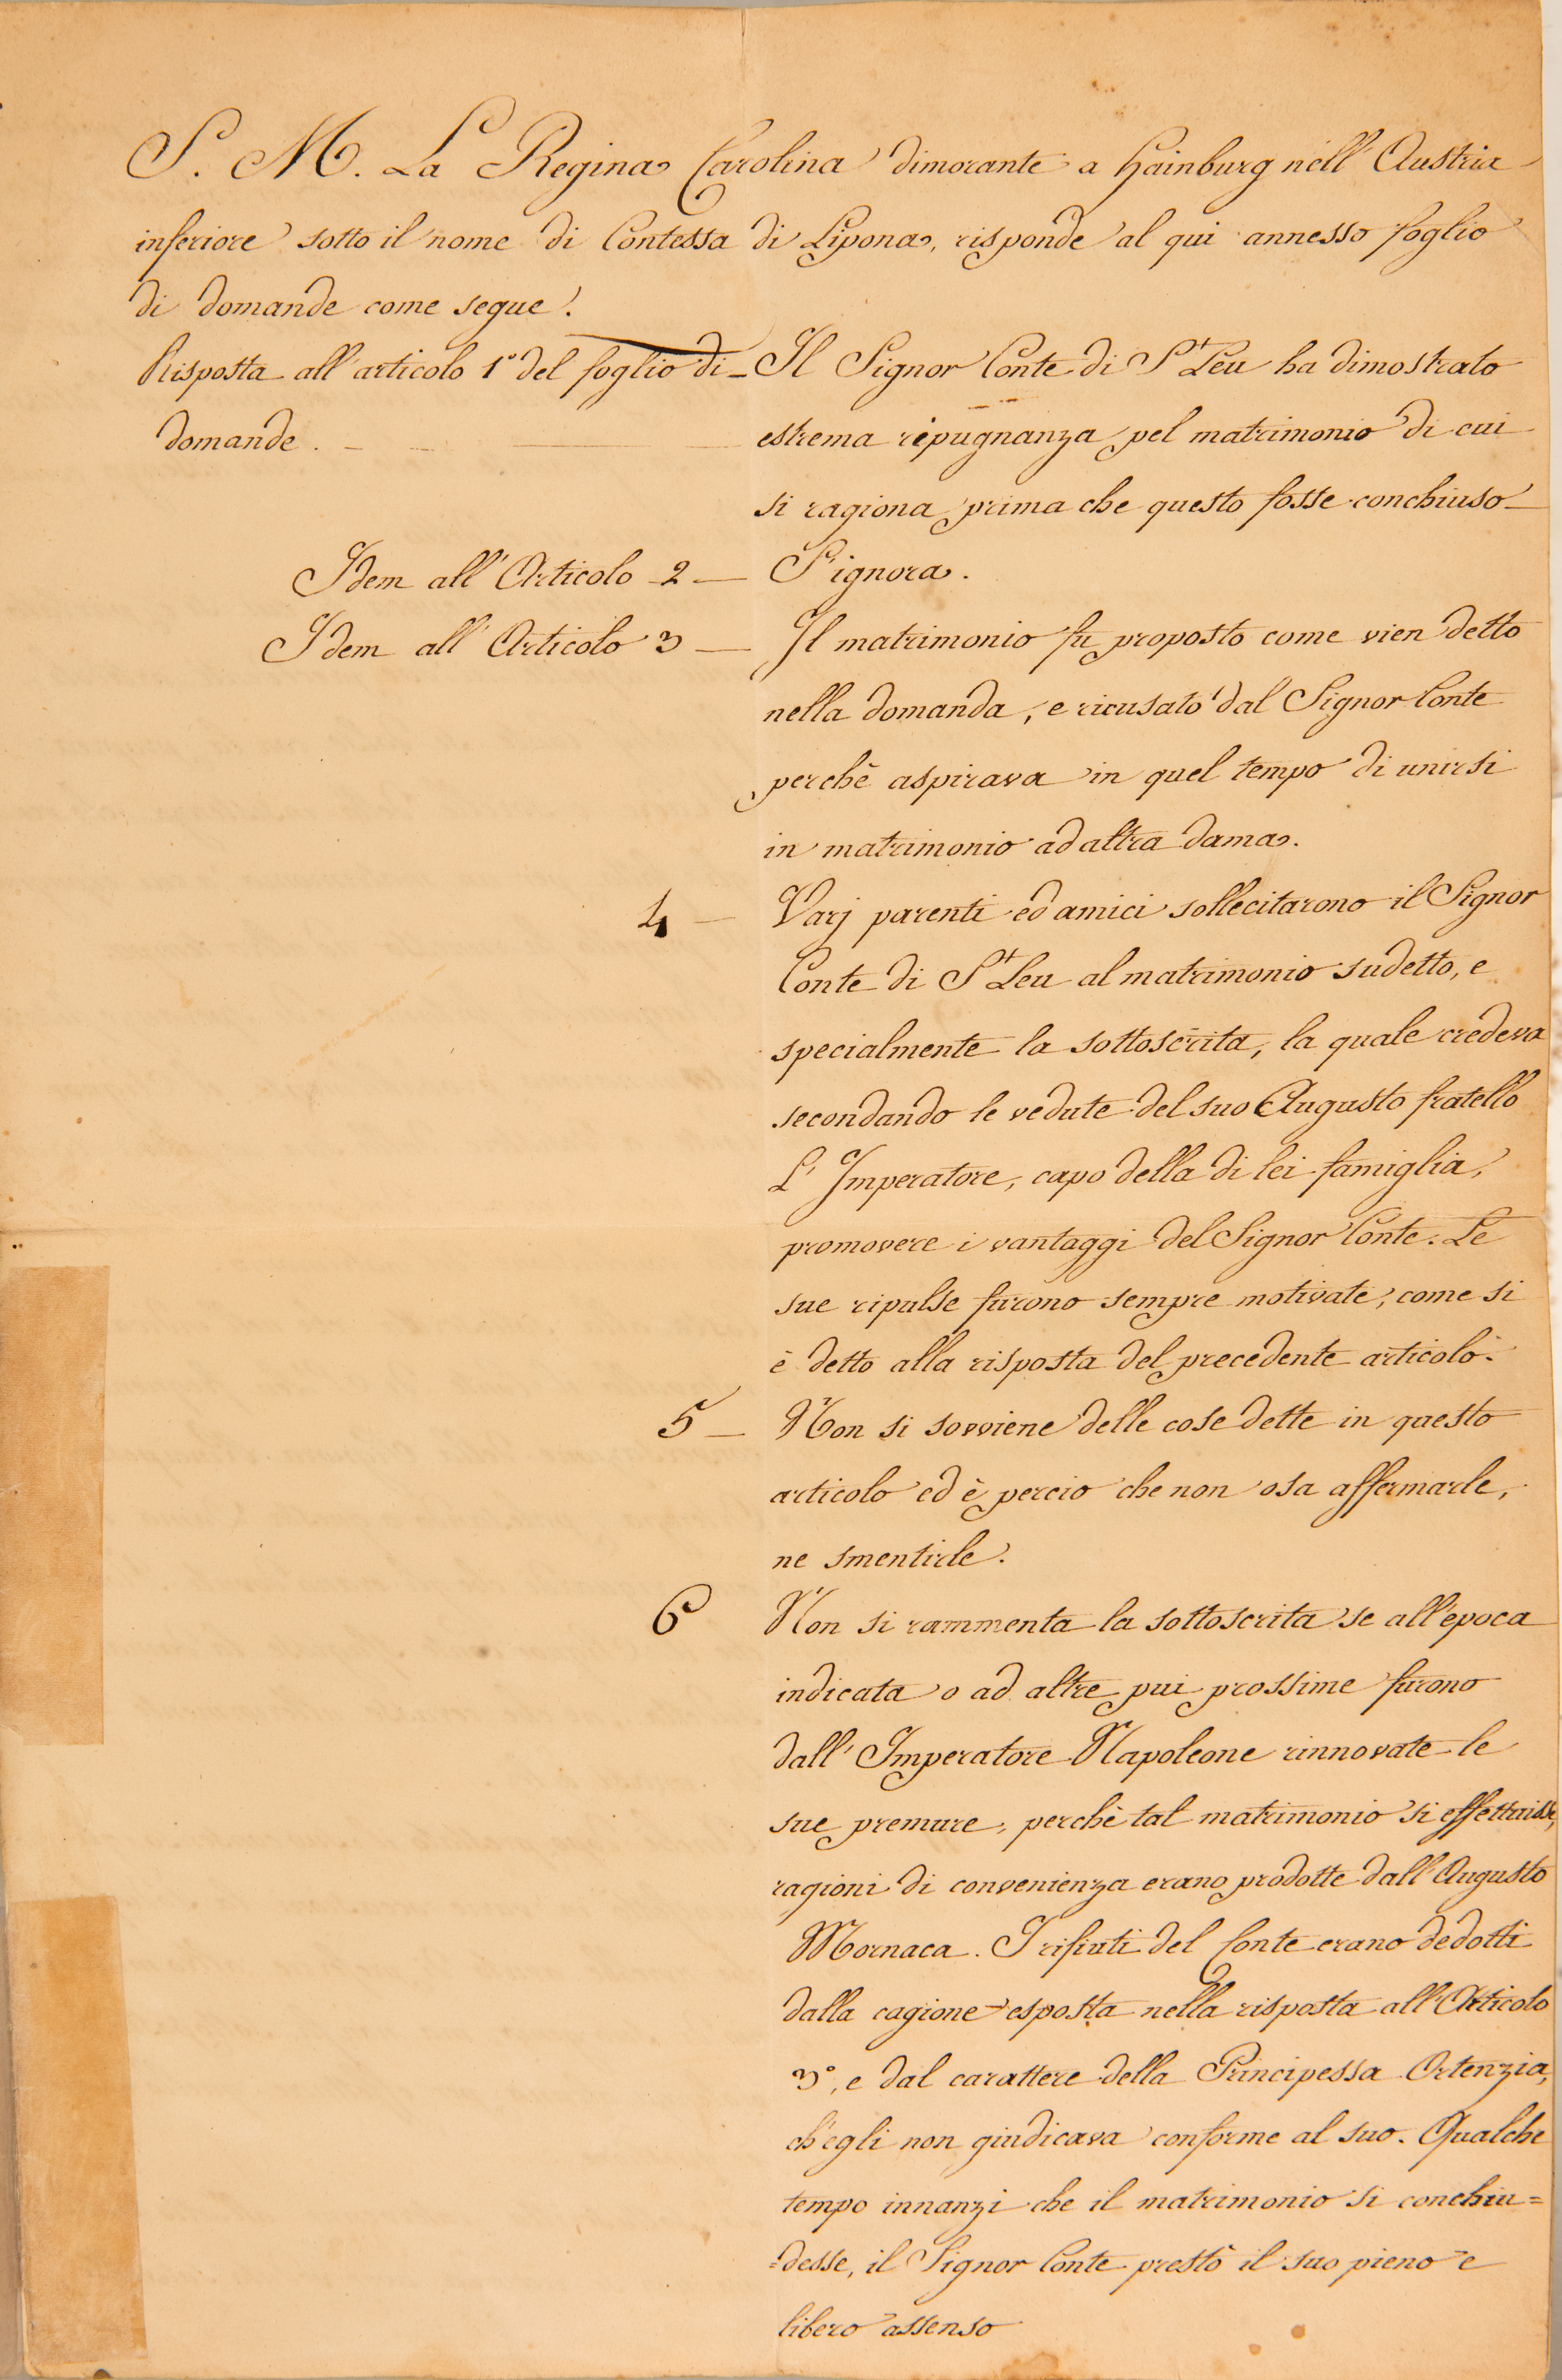 S. M. La Regina Carolina dimorante a Hainburg nell' Austria
inferiore sotto il nome di Contessa di Lipona, risponde al qui annesso foglio
di domande come segue.
Risposta all'articolo 1° del foglio di
domande.
Il Signor Conte di St Leu ha dimostrato
estrema ripugnanza pel matrimonio di cui
si ragiona prima che questo fosse conchiuso
Idem all' Articolo 2 — S'ignora.
Idem all' Articolo 3 — Il matrimonio fu proposto come vien detto
nella domanda, e ricusato dal Signor Conte
perchè aspirava in quel tempo di unirsi
in matrimonio ad altra dama.
4 — Varj parenti ed amici sollecitarono il Signor
Conte di St Leu al matrimonio sudetto, e
specialmente la sottoscrita, la quale credeva
secondando le vedute del suo Augusto fratello
L' Imperatore, capo della di lei famiglia,
promovere i vantaggi del Signor Conte. Le
sue ripulse furono sempre motivate, come si
è detto alla risposta del precedente articolo.
5 — Non si sovviene delle cose dette in questo
articolo ed è percio che non osa affermarle,
ne smentirle.
6 Non si rammenta la sottoscrita se all'epoca
indicata o ad altre pui prossime furono
dall' Imperatore Napoleone rinnovate le
sue premure, perchè tal matrimonio si effettuisse,
ragioni di convenienza erano prodotte dall'Augusto
Mornaca. I rifiuti del Conte erano dedotti
dalla cagione esposta nella risposta all'Articolo
3°, e dal carattere della Principessa Ortenzia,
ch'egli non giudicava conforme al suo. Qualche
tempo innanzi che il matrimonio si conchiu=
=desse, il Signor Conte prestò il suo pieno e
libero assenso